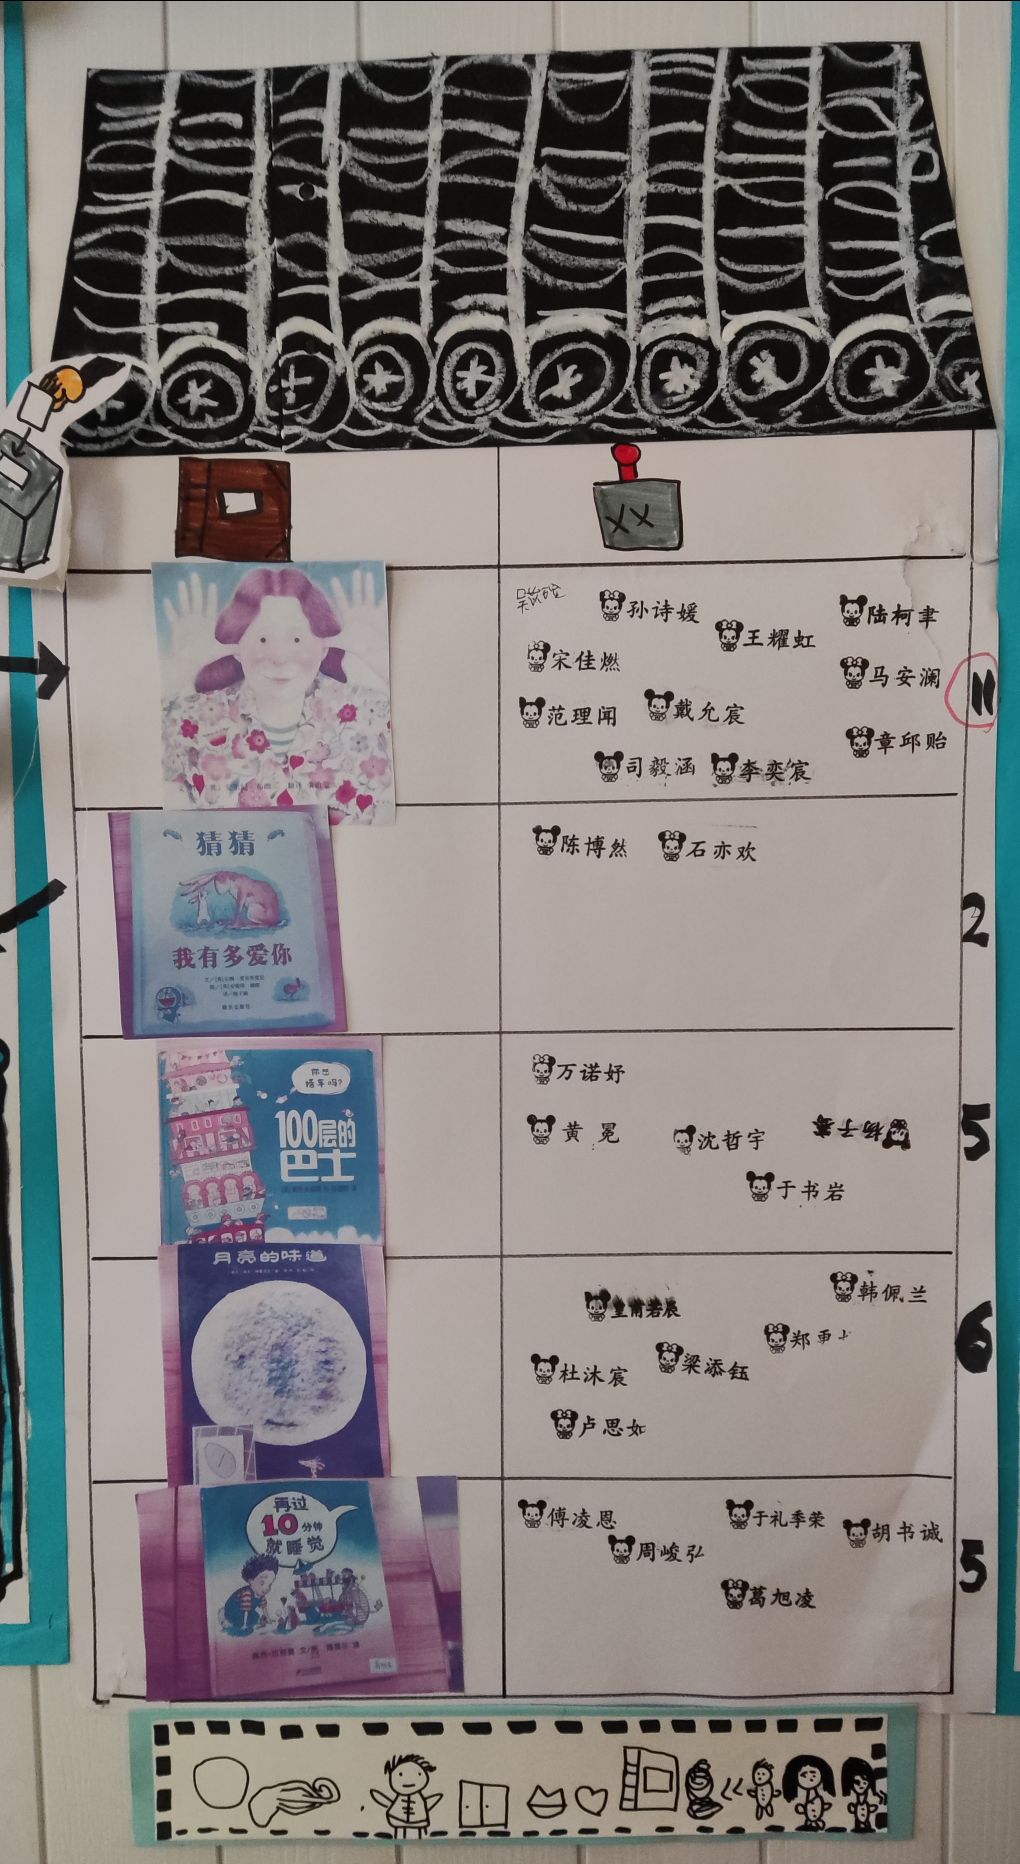 XX
孙诗媛
陆柯聿
王耀虹
宋佳燃
马安澜
范理闻
戴允宸
章邱贻
司毅涵
李奕宸
11
猜猜
我有多爱你
陈博然
石亦欢
2
你想
搭车吗?
100层的
巴士
万诺妤
黄冕
沈哲宇
杨子骞
于书岩
5
月亮的味道
皇甫若辰
韩佩兰
郑
杜沐宸
梁添钰
卢思如
6
再过
10分钟
就睡觉
傅凌恩
于礼季荣
胡书诚
周峻弘
葛旭凌
5